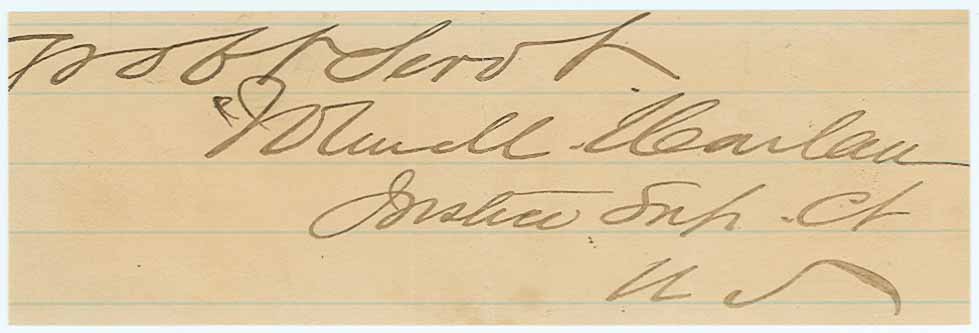 Yr obt Servt
John Marshall Harlan
Justice Sup. Ct
U S